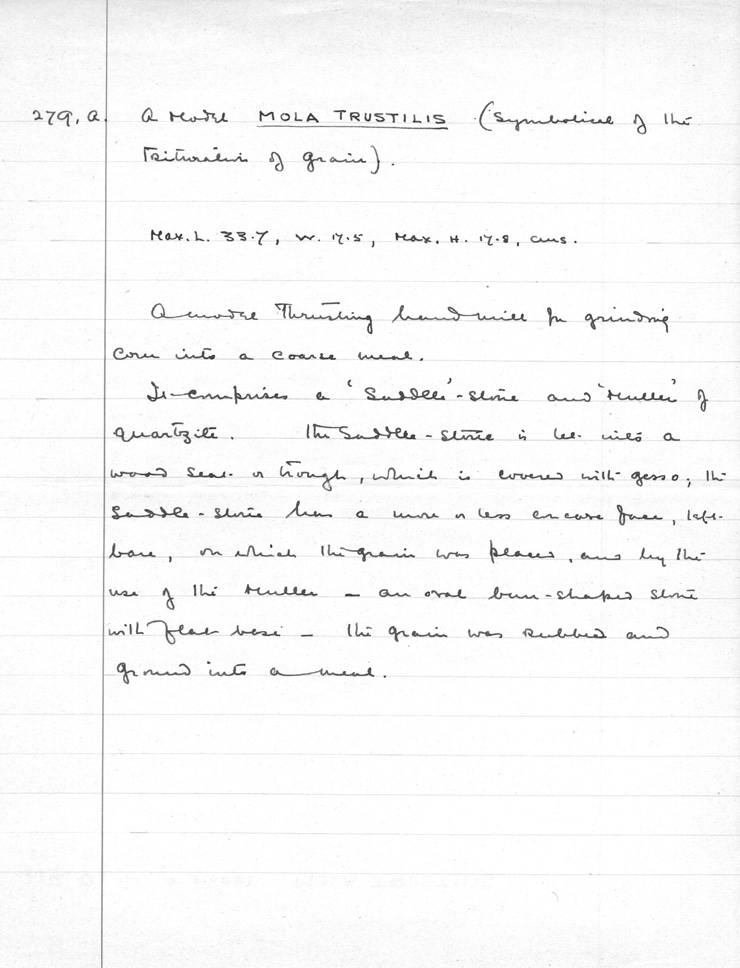 279, a. A Model MOLA TRUSTILIS (Symbolical of the
Trituration of grain).
Max. L. 33.7, W. 17.5, Max. H. 17.8, cms.
A model Thrusting hand mill for grinding
corn into a coarse meal.
It comprises a 'Saddle'-stone and 'Muller' of
quartzite. The Saddle-stone is let into a
wood seat or trough, which is covered with gesso; the
Saddle-stone has a more or less concave face, left
bare, on which the grain was placed, and by the
use of the Muller – an oval bun-shaped stone
with flat base – the grain was rubbed and
ground into a meal.